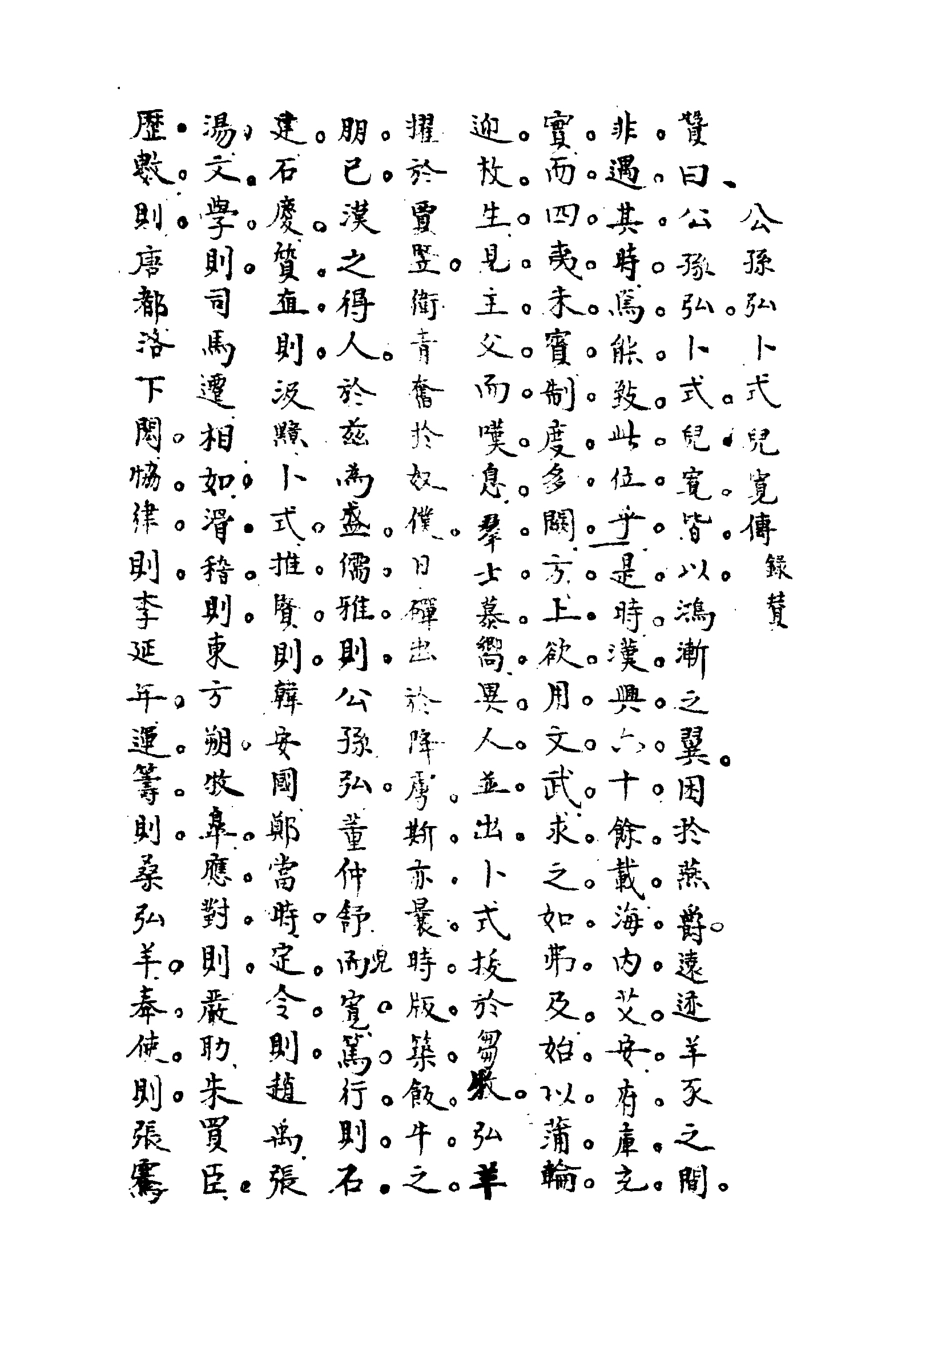 公孫弘卜式兒寬傳 錄贊
贊曰公孫弘卜式兒寬皆以鴻漸之翼困於燕爵遠迹羊豕之間
非遇其時焉能致此位乎是時漢興六十餘載海內艾安府庫充
實而四夷未賓制度多闕方上欲用文武求之如弗及始以蒲輪
迎枚生見主父而嘆息羣士慕嚮異人並出卜式拔於芻牧弘羊
擢於賈豎衛青奮於奴僕日磾出於降虜斯亦曩時版築飯牛之
朋已漢之得人於茲為盛儒雅則公孫弘董仲舒兒而寬篤行則石
建石慶質直則汲黯卜式推賢則韓安國鄭當時定令則趙禹張
湯文學則司馬遷相如滑稽則東方朔牧皋應對則嚴助朱買臣
歷數則唐都洛下閎協律則李延年運籌則桑弘羊奉使則張騫